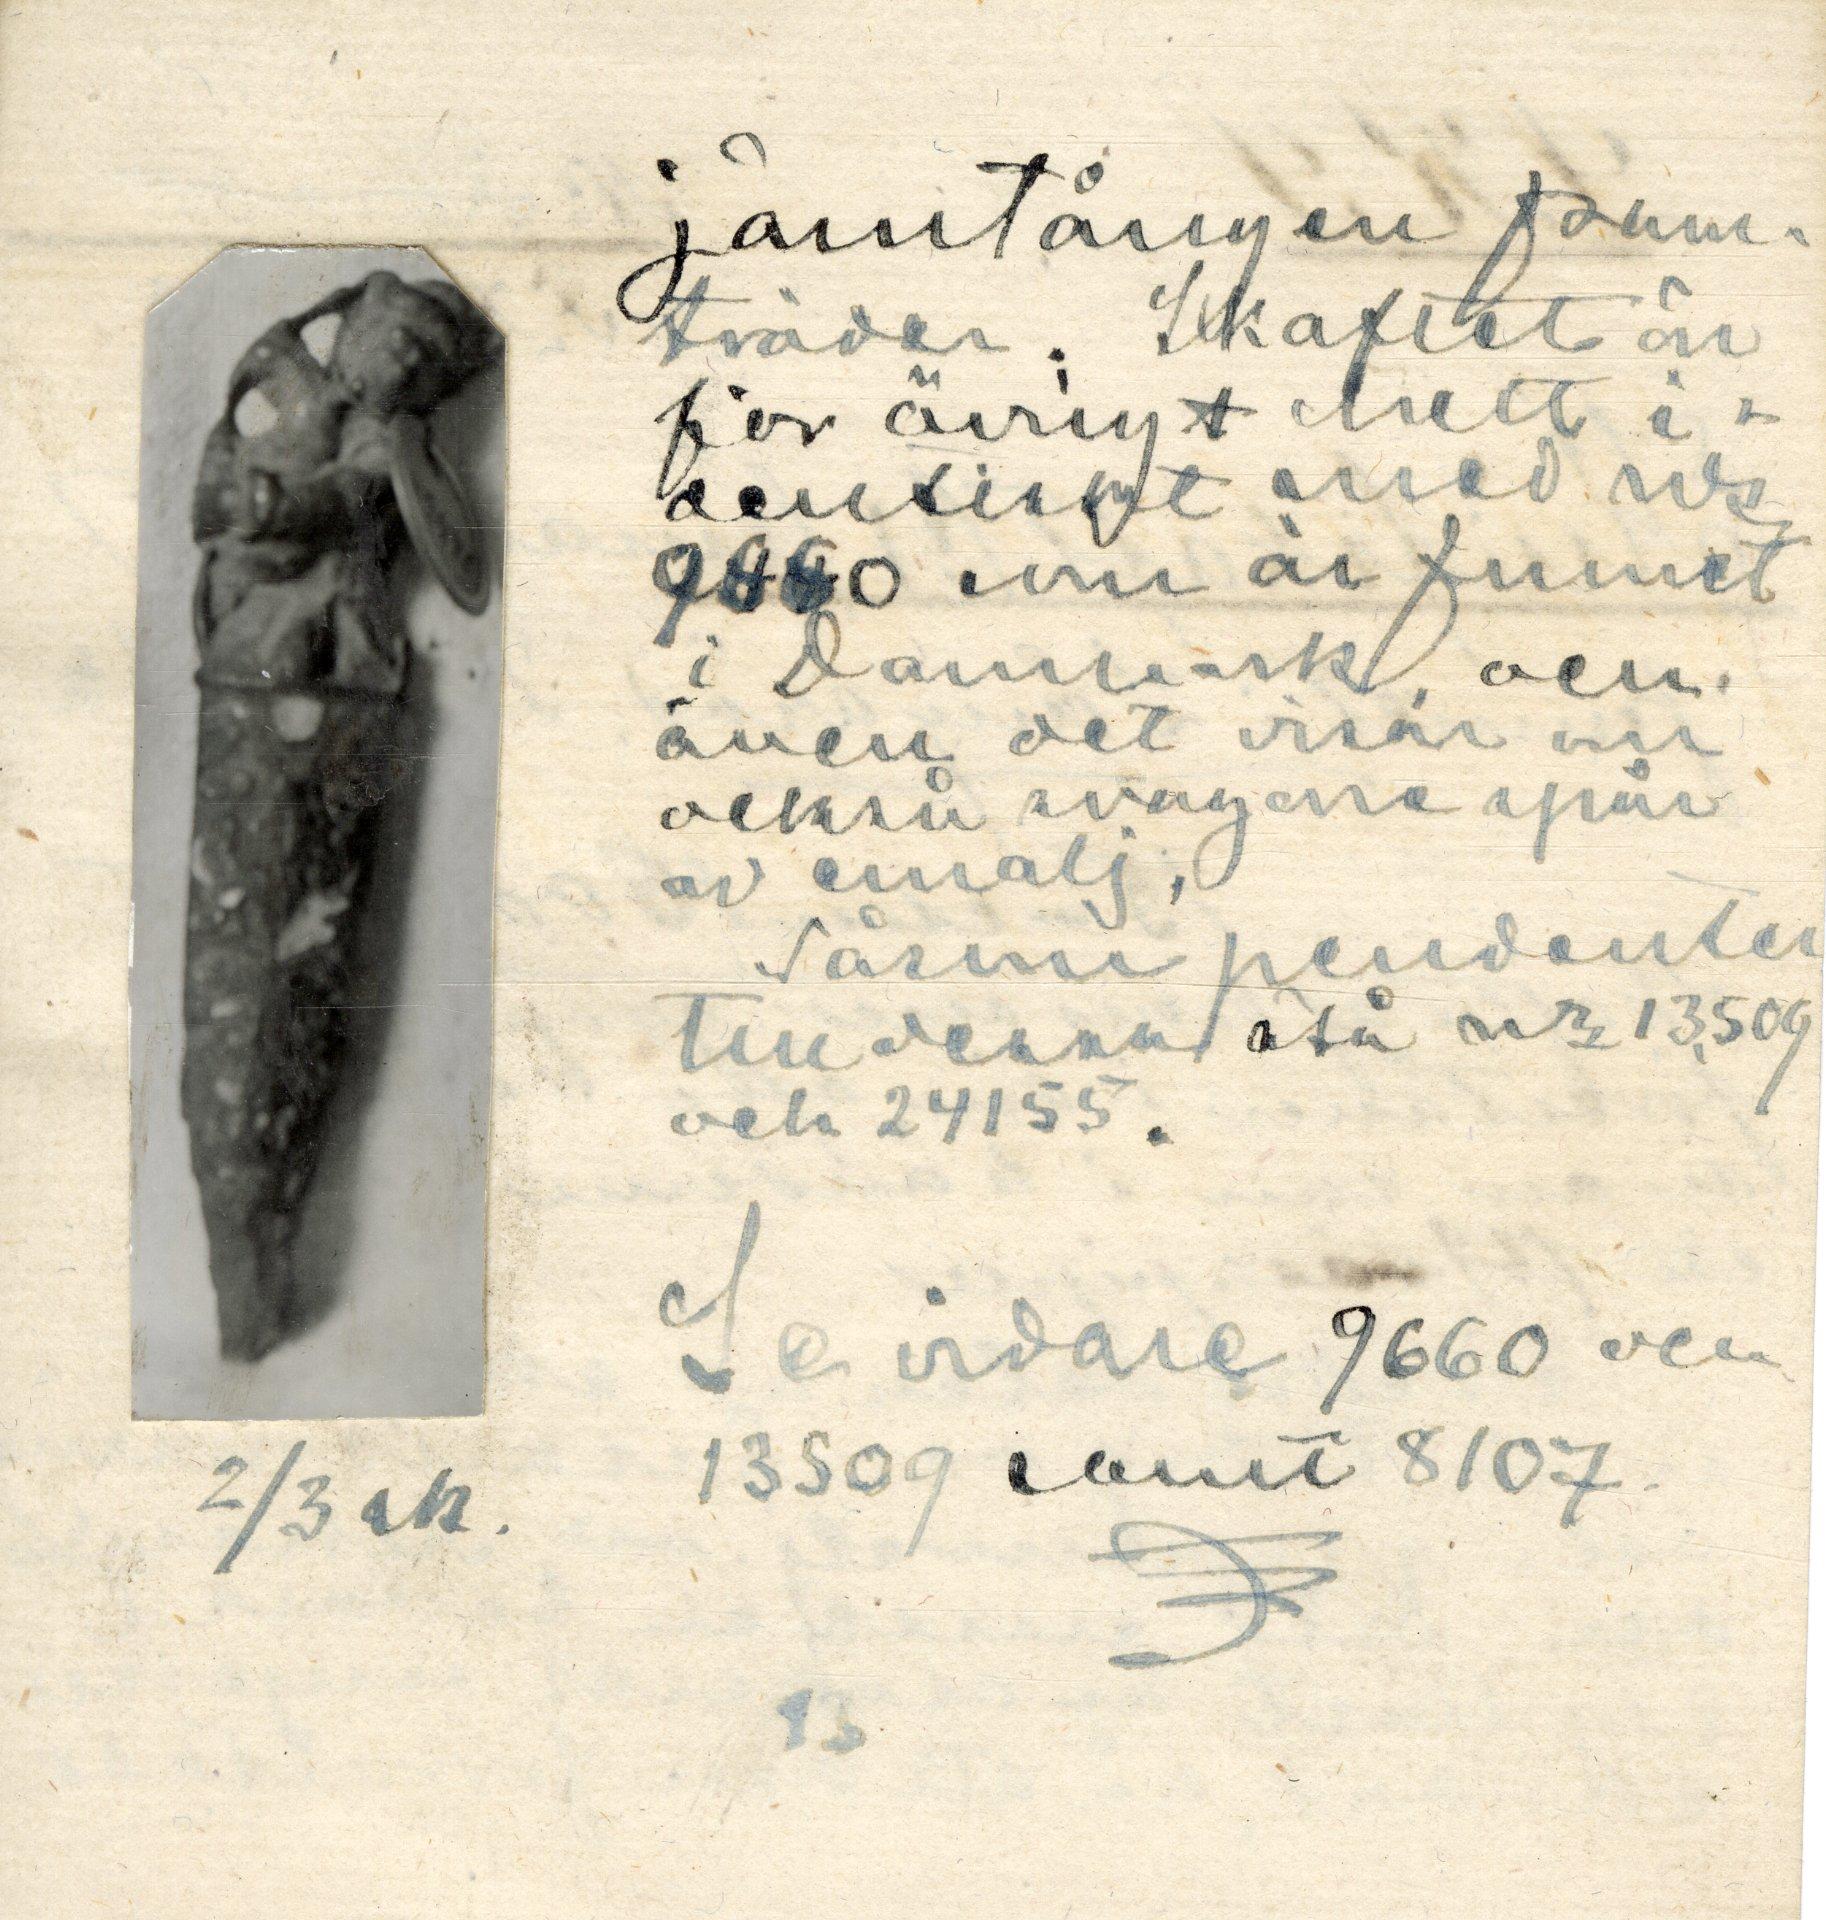 järntången fram-
träder. Skaftet är
för övrigt helt i-
dentiskt med nr
9660 som är funnet
i Danmark, och
även det visar om
också svagare spår
av emalj.
Såsom pendanter
till dessa stå nr 13,509
och 24155.
Se vidare 9660 och
13509 samt 8107.
2/3 sk.
13